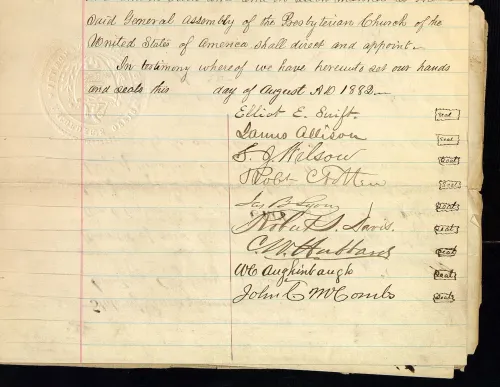 said General Assembly of the Presbyterian Church of the
United States of America shall direct and appoint.
In testimony whereof we have hereunto set our hands
and seals this day of August AD 1882.
Elliot E. Swift. seal
James Allison seal
S. J. Wilson seal
Robt C. Totten seal
Jas B Lyon seal
Robert S. Davis. seal
C. W. Hubbard seal
W C Aughinbaugh seal
John C McCombs seal